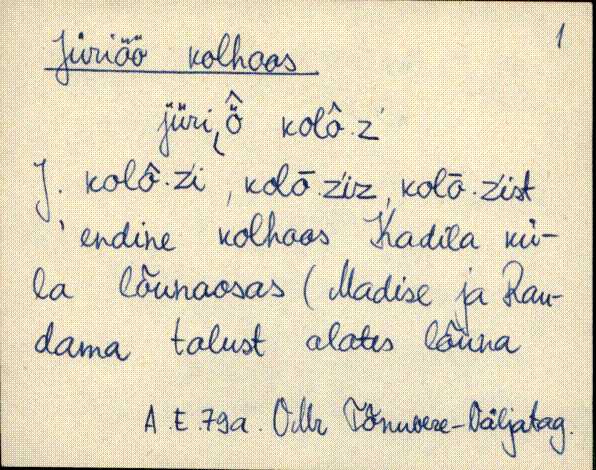 1
Jüriöö kolhoos
jüri‿ö̂ kolô·z´
J. kolô·z´i, kolō·z´iz, kolō·z´ist
'endine kolhoos Kadila kü-
la lõunaosas (Madise ja Rau-
dama talust alates lõuna
A.E. 79a. O.Mr Tõnuvere-Väljatag.